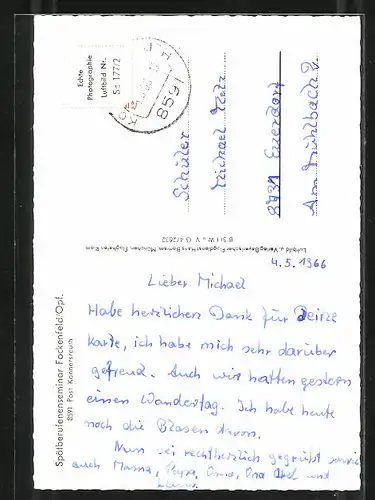 Echte
Photographie
Luftbild Nr.
Ss 177/2
8591
Schüler
Michael
8731 Euerdorf
Am Mühlbach
Luftbild u. Verlag Bayerischer Flugdienst Hans Bertram, München, Flughafen Riem
4.5.1966
Lieber Michael
Habe herzlichen Dank für Deine
Karte, ich habe mich sehr darüber
gefreut. Auch wir hatten gestern
einen Wandertag. Ich habe heute
noch die Blasen davon.
Nun sei recht herzlich gegrüßt sowie
auch Mama, Papa, Oma, Opa und
Spätberufenenseminar Fockenfeld/Opf.
8591 Post Konnersreuth